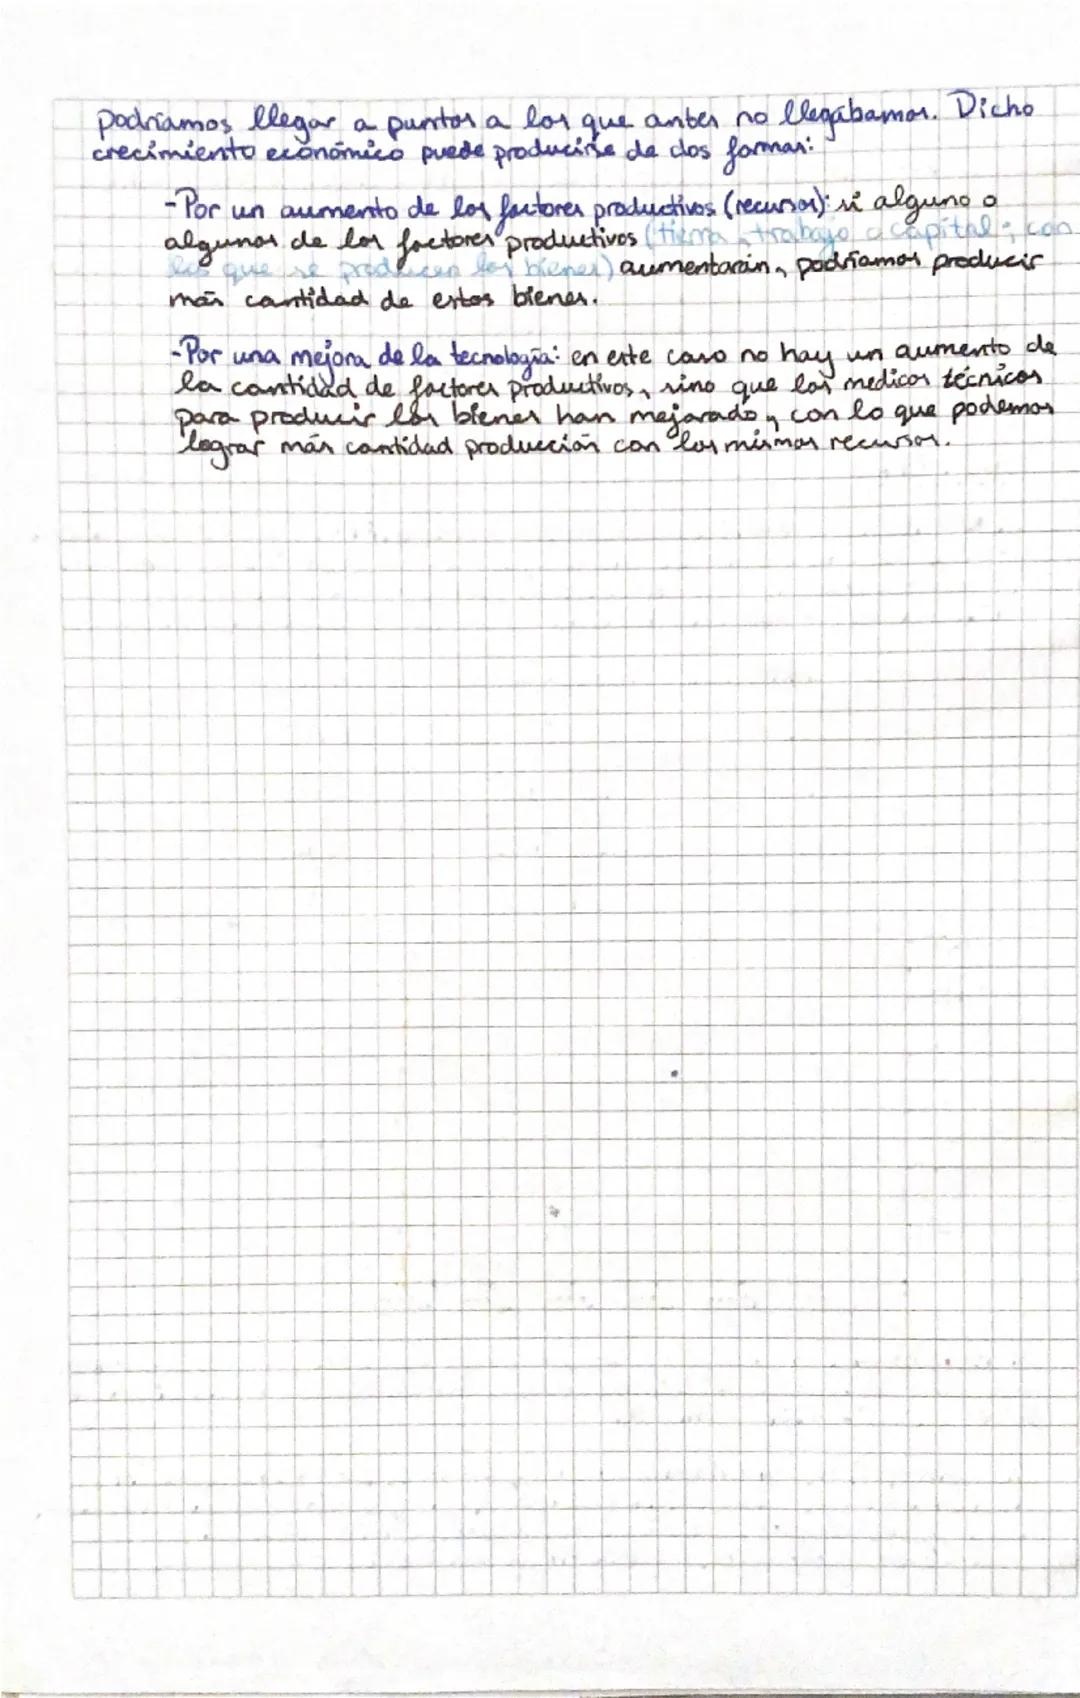 podríamos llegar a puntos a los que antes no llegábamos. Dicho
crecimiento económico puede producirse de dos formas:
-Por un aumento de los factores productivos (recursos): si alguno o
algunos de los factores productivos (tierra, trabajo o capital; con
los que se producen los bienes) aumentarán, podríamos producir
más cantidad de estos bienes.
-Por una mejora de la tecnología: en este caso no hay un aumento de
la cantidad de factores productivos, sino que los medicos técnicos
para producir los bienes han mejorado, con lo que podemos
lograr más cantidad producción con los mismos recursos.